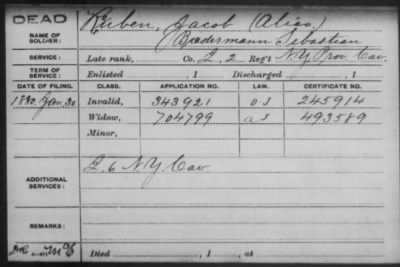 DEAD
NAME OF SOLDIER:
Ruben, Jacob (Alias)
Biedermann Sebastian
SERVICE:
Late rank, Co. L, 2 Reg't N.Y. Prov. Cav.
TERM OF SERVICE:
Enlisted , 1 Discharged , 1
DATE OF FILING. CLASS. APPLICATION NO. LAW. CERTIFICATE NO.
1880 Jan. 30 Invalid, 343921 245914
Widow, 704799 493589
Minor,
ADDITIONAL SERVICES:
L 6 N.Y. Cav
REMARKS:
Died , 1 , at